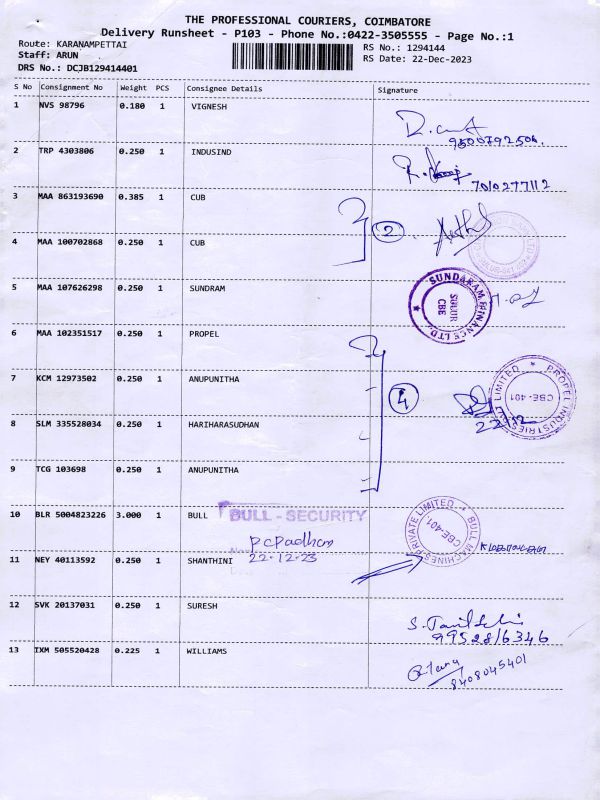 THE PROFESSIONAL COURIERS, COIMBATORE
Delivery Runsheet - P103 - Phone No.:0422-3505555 - Page No.:1
Route: KARANAMPETTAI
RS No.: 1294144
Staff: ARUN
RS Date: 22-Dec-2023
DRS No.: DCJB129414401
S No Consignment No Weight PCS Consignee Details Signature
1 NVS 98796 0.180 1 VIGNESH
9500792504.
2 TRP 4303806 0.250 1 INDUSIND
7010277112
3 MAA 863193690 0.385 1 CUB
2
4 MAA 100702868 0.250 1 CUB
5 MAA 107626298 0.250 1 SUNDRAM
SUNDARAM FINANCE LTD.
SULUR
CBE
6 MAA 102351517 0.250 1 PROPEL
7 KCM 12973502 0.250 1 ANUPUNITHA
4
PROPEL INDUSTRIES PVT LIMITED
CBE-401
8 SLM 335528034 0.250 1 HARIHARASUDHAN
9 TCG 103698 0.250 1 ANUPUNITHA
10 BLR 5004823226 3.000 1 BULL
BULL - SECURITY
BULL MACHINES PRIVATE LIMITED
CBE-401
22-12-23
11 NEY 40113592 0.250 1 SHANTHINI
12 SVK 20137031 0.250 1 SURESH
9952816346
13 IXM 505520428 0.225 1 WILLIAMS
8408045401